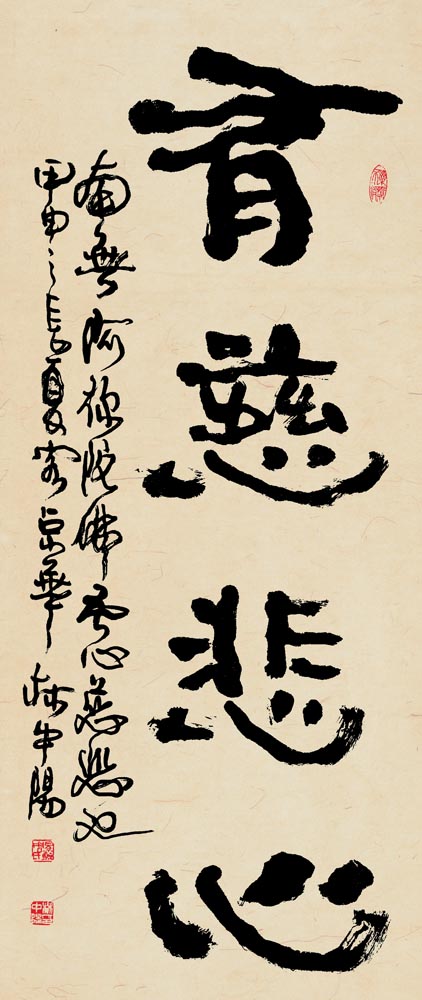 有慈悲心
南無阿彌陀佛 吾心慈悲也
甲申之長夏客京華 林中陽